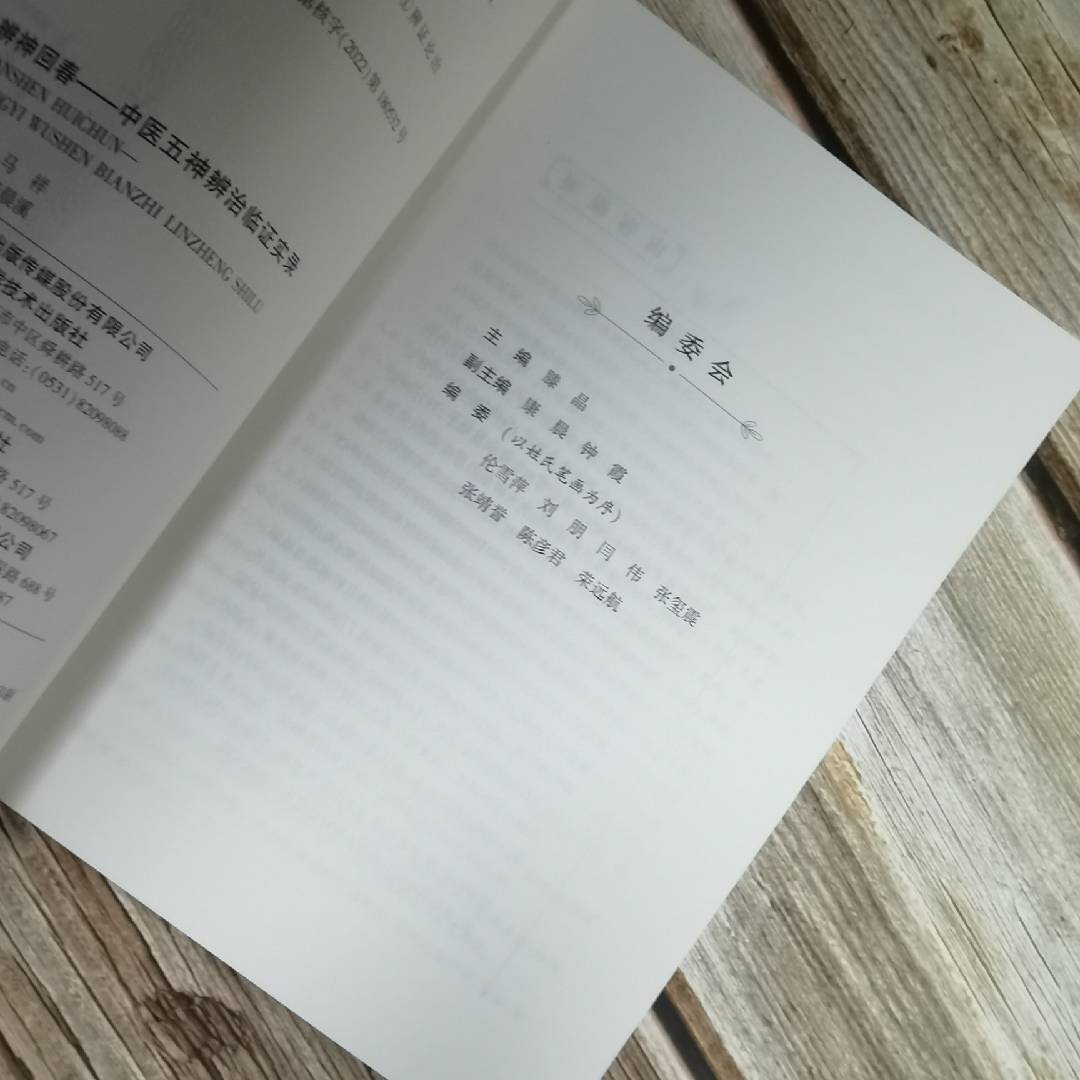 ①辨证论治
核字(2022)第18932号
辨神回春——中医五神辨治临证实录
SHEN HUICHUN—
YI WUSHEN BIANZHI LINZHENG SHILU
马 祥
出版传媒股份有限公司
技术出版社
市中区舜耕路 517 号
电话:(0531)82098088
.cn
cm.com
社
路 517 号
82098067
公司
路 688 号
编委会
主 编 滕 晶
副主编 康 晨 钟 霞
编 委 (以姓氏笔画为序)
伦雪萍 刘 朋 闫 伟 张玺震
张靖誉 陈彦君 荣远航